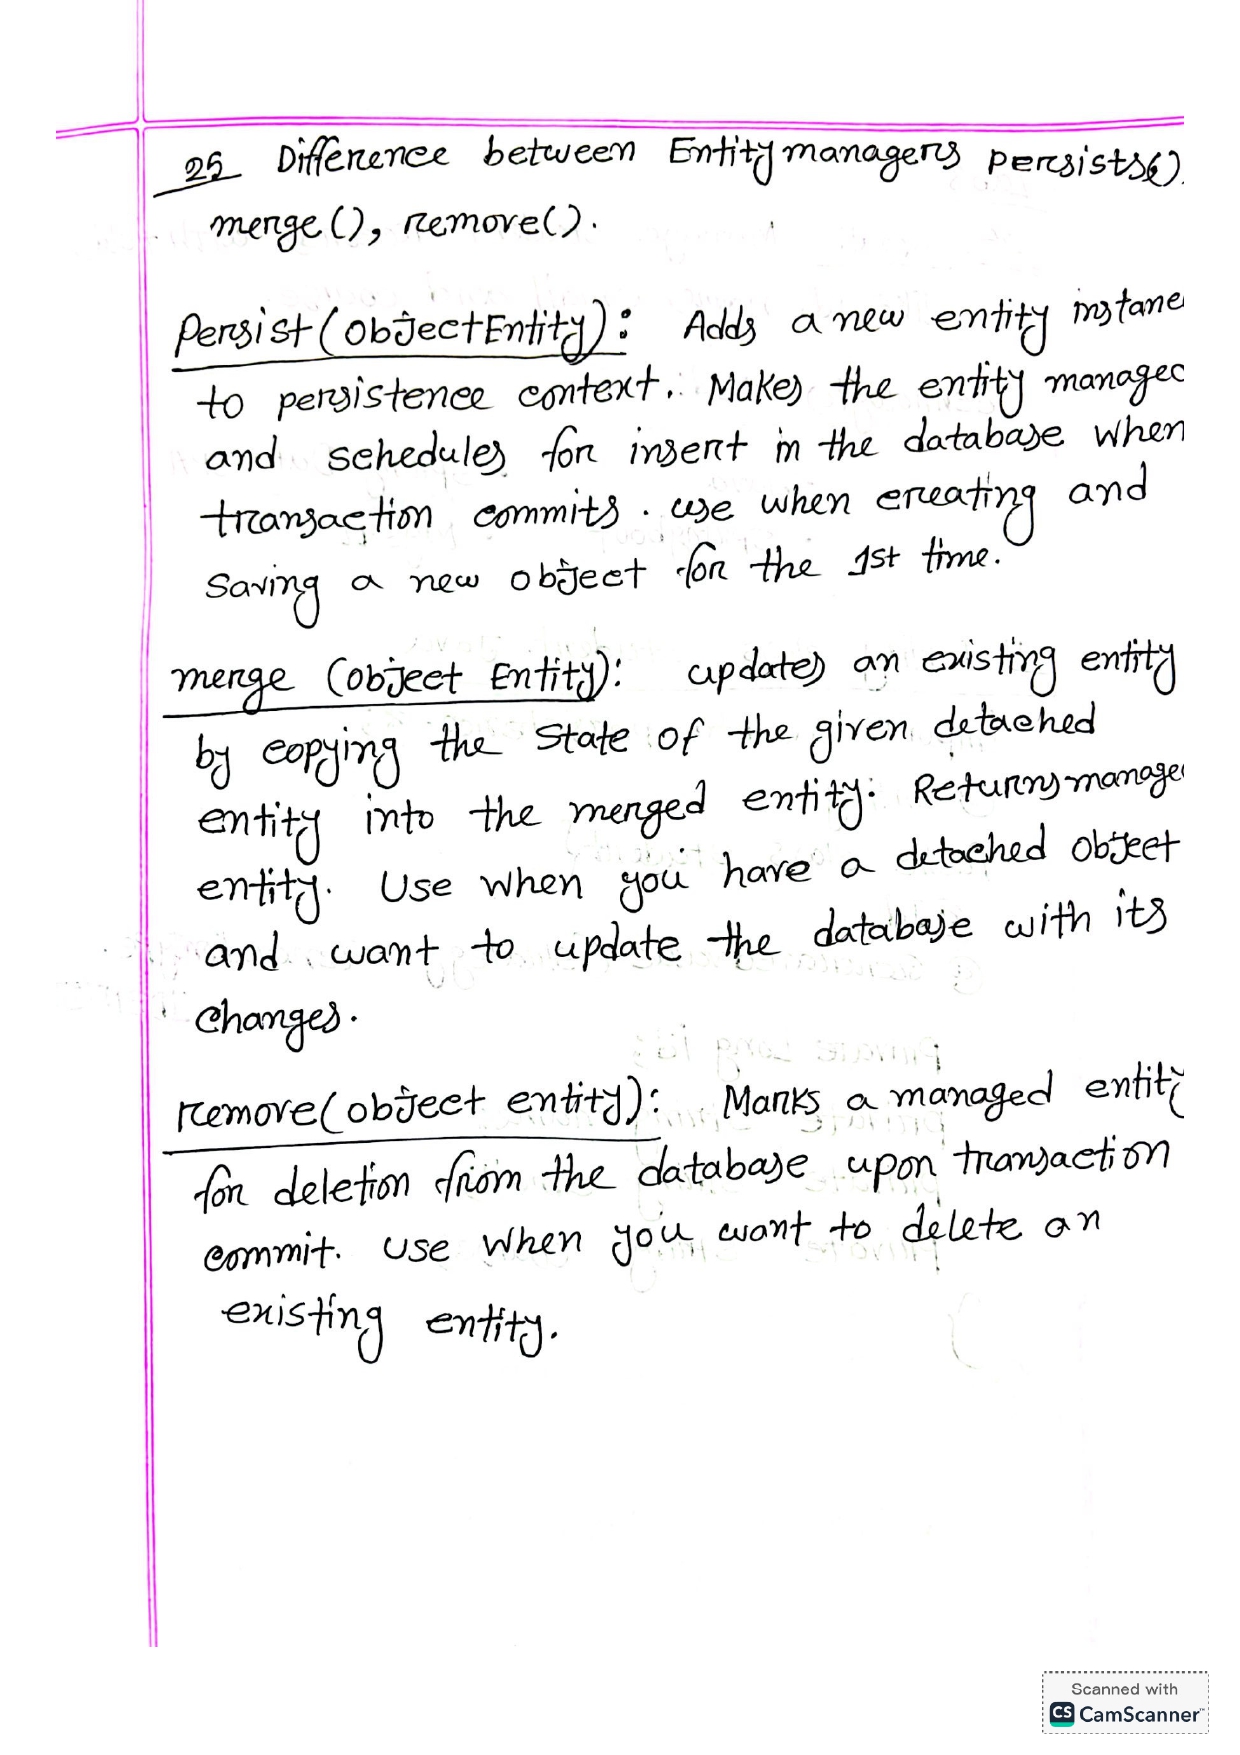 25 Difference between Entitymanagers persists()
merge(), remove().
Persist(objectEntity): Adds a new entity instanc
to persistence context. Makes the entity managec
and schedules for insert in the database when
transaction commits. use when creating and
Saving a new object for the 1st time.
merge (object Entity): updates an existing entity
by copying the State of the given detached
entity into the merged entity. Returns manage
entity. Use when you have a detached object
and want to update the database with its
changes.
remove(object entity): Marks a managed entity
for deletion from the database upon transaction
commit. Use when you want to delete an
existing entity.
Scanned with
CS CamScanner